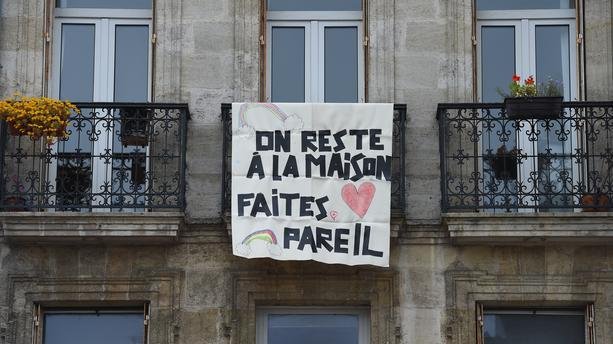 ON RESTE
À LA MAISON
FAITES
PAREIL